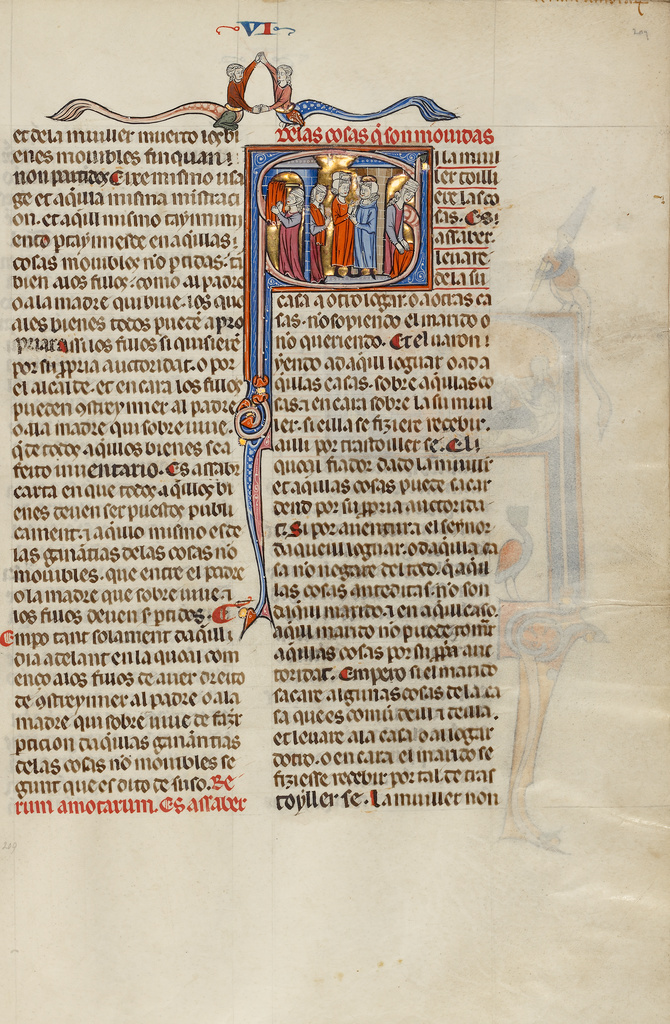 VI
209
et dela muiller muerto los bi
enes mouibles finquan i
non partidos. Eixe mismo usa
ge et aqlla misma mistraci
on. et aqll mismo taymiam
ento ptaynnesce en aqllas
cosas mouibles no ptidas. ta
bien alos fillos. como al padre
o ala madre qui biue. los qua
ales bienes todos puede apro
priar assi los fillos si quisiere
por su ppria auctoridat. o por
el alcalde. et en cara los fillos
pueden ostreynner al padre
o ala madre qui sobre uiue.
q de todos aqllos bienes sea
feito inuentario. Es assab
carta en que todos aqllos bi
enes deuen ser puestos publi
cament. aqllo mismo es de
las ganatias delas cosas no
mouibles. que entre el padre
o la madre que sobre uiue
los fillos deuen s ptidos. E
Empo tant solament daqll
dia adelant en la quoal com
enço alos fillos de auer dreito
de ostreynner al padre o ala
madre qui sobre uiue de fazr
pticion daqllas ganantias
delas cosas no mouibles se
gunt que es dito de suso. Re
rum amotarum. Es assaber
delas cosas q son mouidas
la muill
ler coilli
ere las co
sas. Es
assaber.
leuare
de la su
casa a otro logar. o a otras ca
sas. no sopiendo el marido o
no queriendo. Et el uaron
yendo ad aqll logar o ad a
qllas casas. sobre aqllas co
sas en cara sobre la su muil
ler. si eilla se fiziere recebir.
ailli por trastoiller se. El
quoal fiador dado la muiller
et aqllas cosas puede sacar
dend por su ppria auctorida
t. Si por auentura el seynnor
daqueill logar. o daqlla ca
sa no negare del todo. q aqll
las cosas anteditas. no son
daqll marido. en aqll caso.
aqll marido no puede tomar
aqllas cosas por su ppa auc
toridat. Empero si el marido
sacare algunas cosas de la ca
sa que es comu deill deilla.
et leuare a la casa o al logar
dotro. o en cara el marido se
fiziesse recebir por tal de tras
toyller se. La muiller non
209